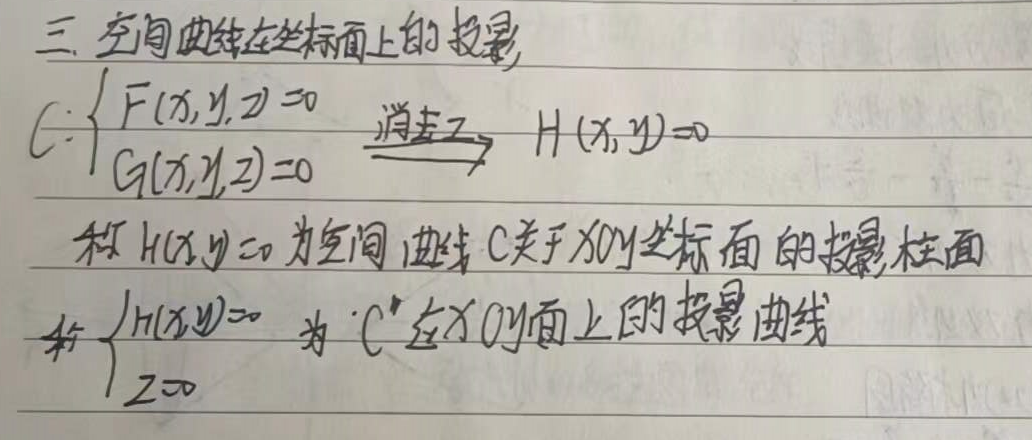 三. 空间曲线在坐标面上的投影,
C: { F(x,y,z)=0 消去z H(x,y)=0
G(x,y,z)=0
称 H(x,y)=0 为空间曲线C关于xoy坐标面的投影柱面
称 { H(x,y)=0 为 C' 在xoy面上的投影曲线
z=0